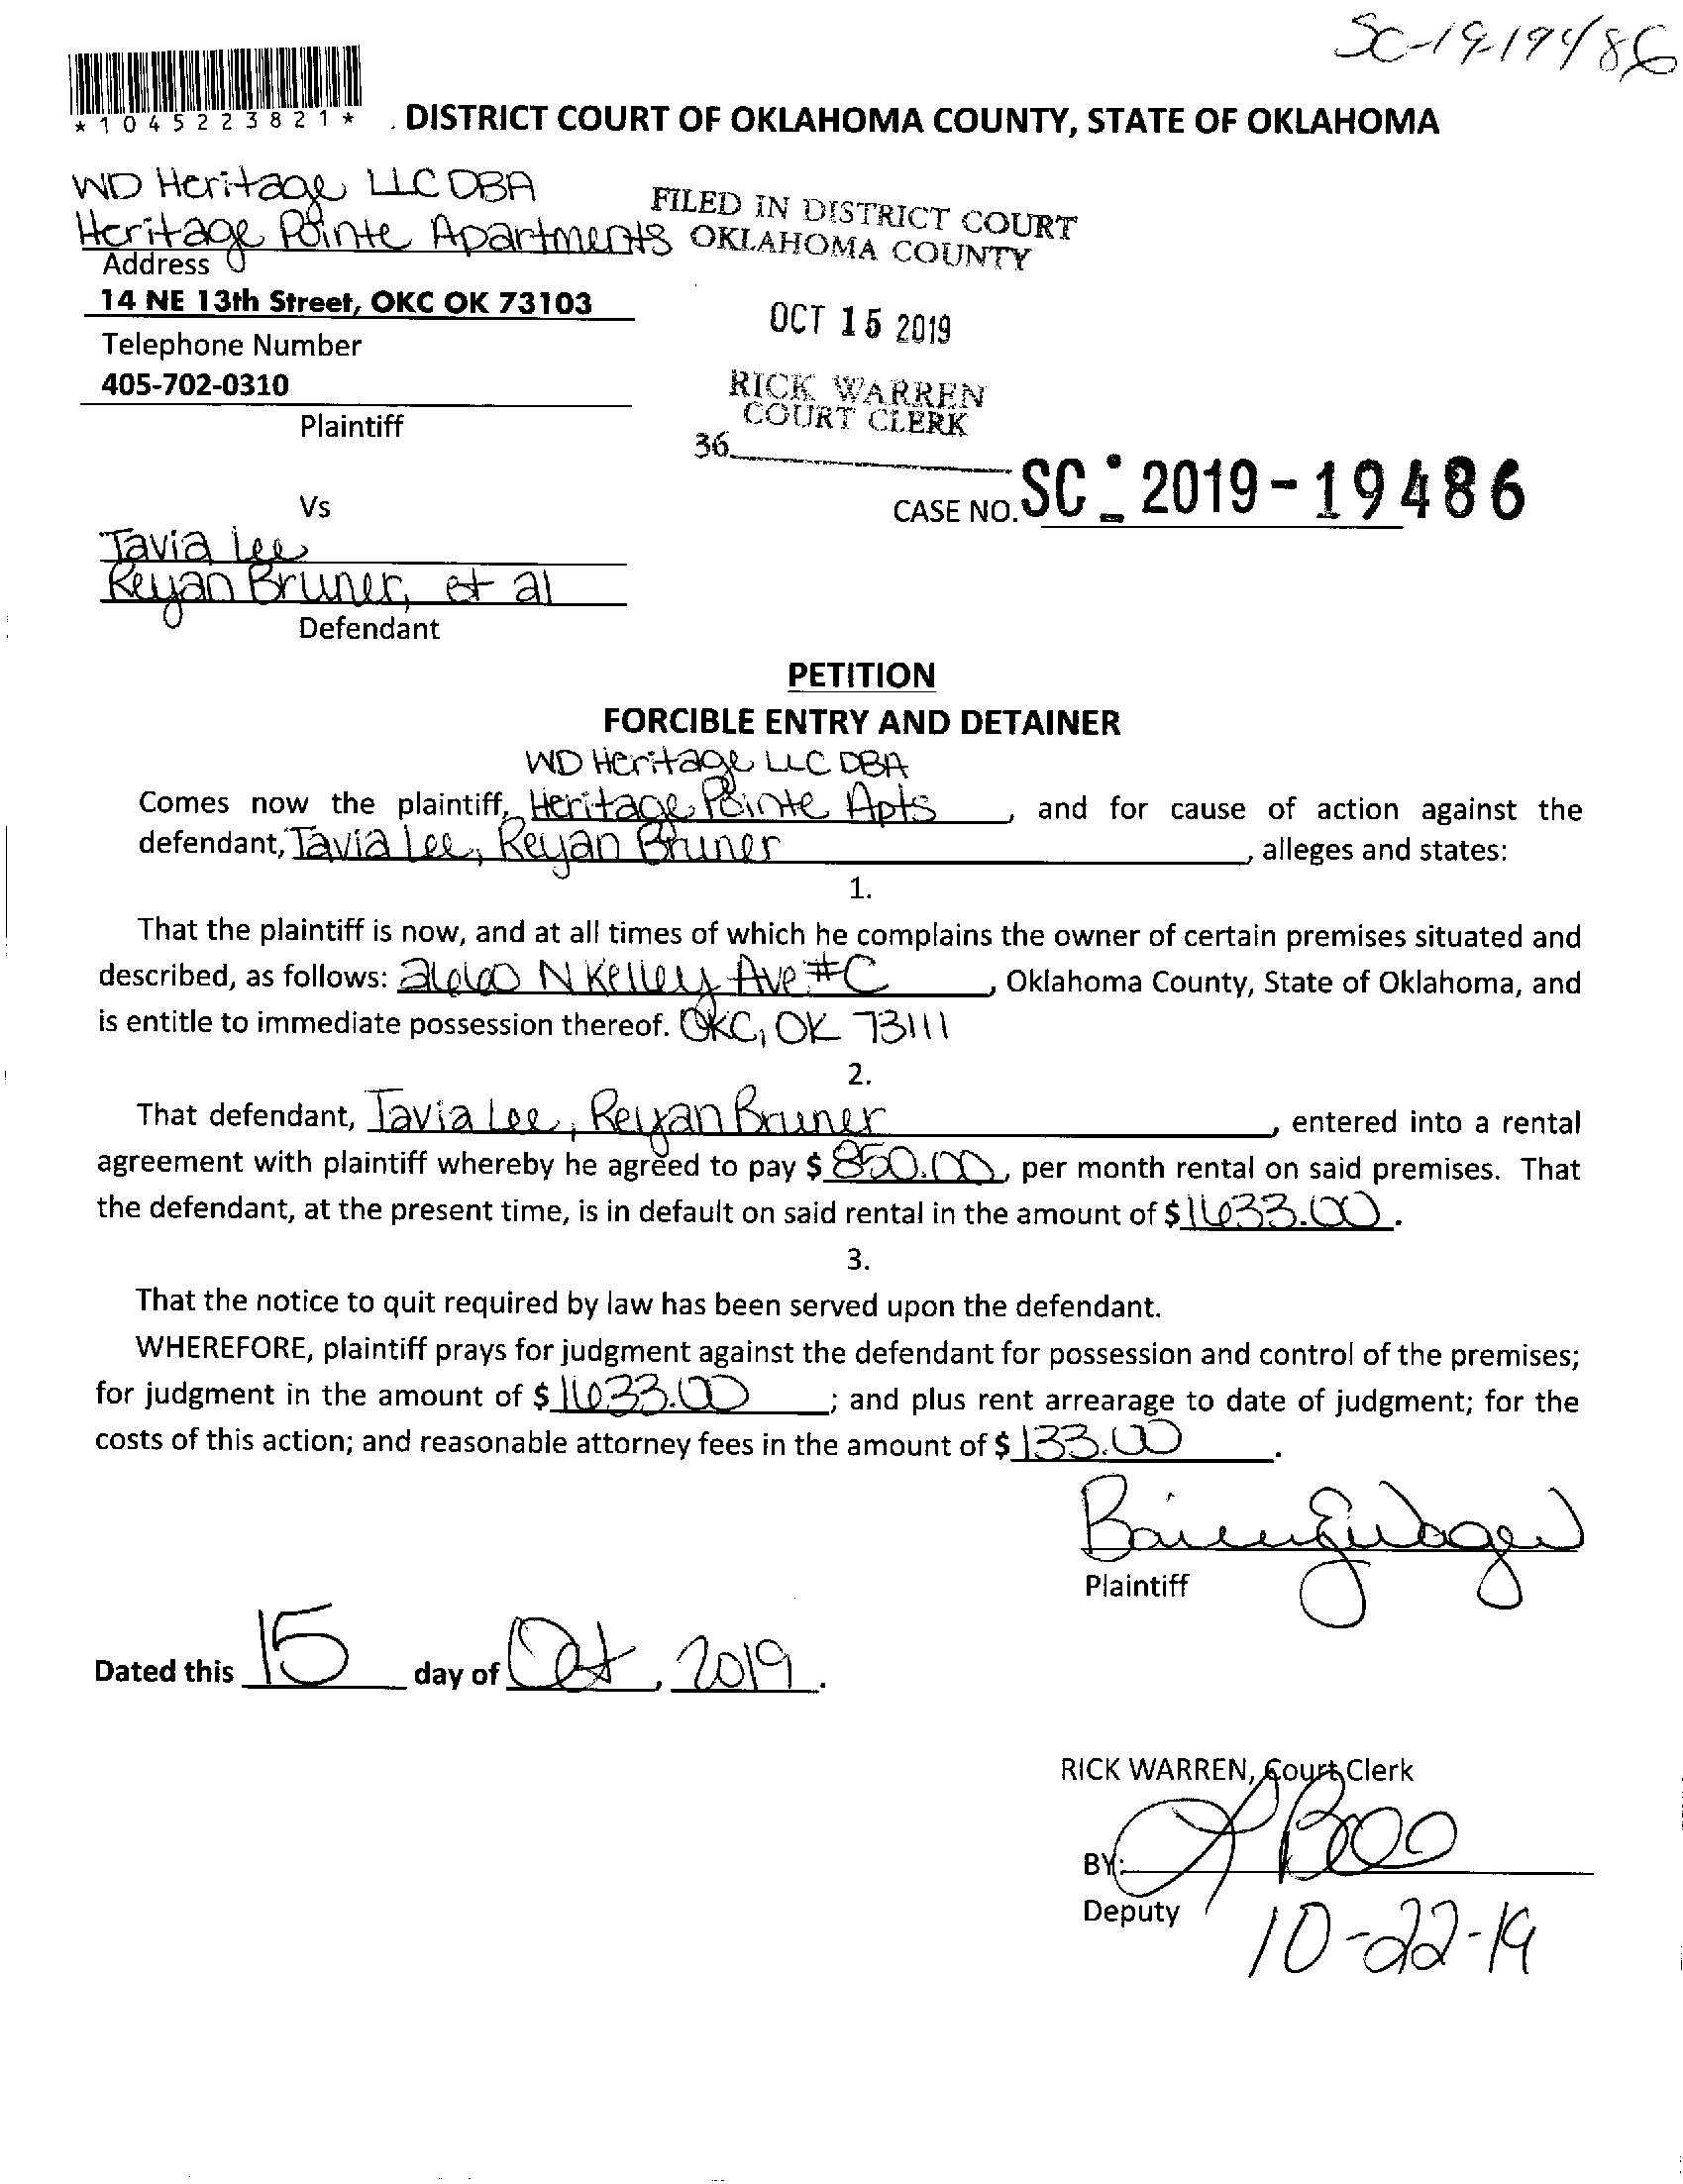 SC-19-19486
*1045223821*
DISTRICT COURT OF OKLAHOMA COUNTY, STATE OF OKLAHOMA
WD Heritage LLC DBA
Heritage Pointe Apartments
FILED IN DISTRICT COURT
OKLAHOMA COUNTY
Address
14 NE 13th Street, OKC OK 73103
OCT 15 2019
Telephone Number
405-702-0310
RICK WARREN
COURT CLERK
Plaintiff
36
Vs
CASE NO. SC - 2019-19486
Tavia Lee
Reyan Bruner, et al
Defendant
PETITION
FORCIBLE ENTRY AND DETAINER
WD Heritage LLC DBA
Comes now the plaintiff, Heritage Pointe Apts, and for cause of action against the
defendant, Tavia Lee, Reyan Bruner, alleges and states:
1.
That the plaintiff is now, and at all times of which he complains the owner of certain premises situated and
described, as follows: 2660 N Kelley Ave #C, Oklahoma County, State of Oklahoma, and
is entitle to immediate possession thereof. OKC, OK 73111
2.
That defendant, Tavia Lee, Reyan Bruner, entered into a rental
agreement with plaintiff whereby he agreed to pay $ 850.00, per month rental on said premises. That
the defendant, at the present time, is in default on said rental in the amount of $ 1633.00.
3.
That the notice to quit required by law has been served upon the defendant.
WHEREFORE, plaintiff prays for judgment against the defendant for possession and control of the premises;
for judgment in the amount of $ 1633.00; and plus rent arrearage to date of judgment; for the
costs of this action; and reasonable attorney fees in the amount of $ 133.00.
Plaintiff
Dated this 15 day of Oct, 2019.
RICK WARREN, Court Clerk
BY:
Deputy
10-22-19